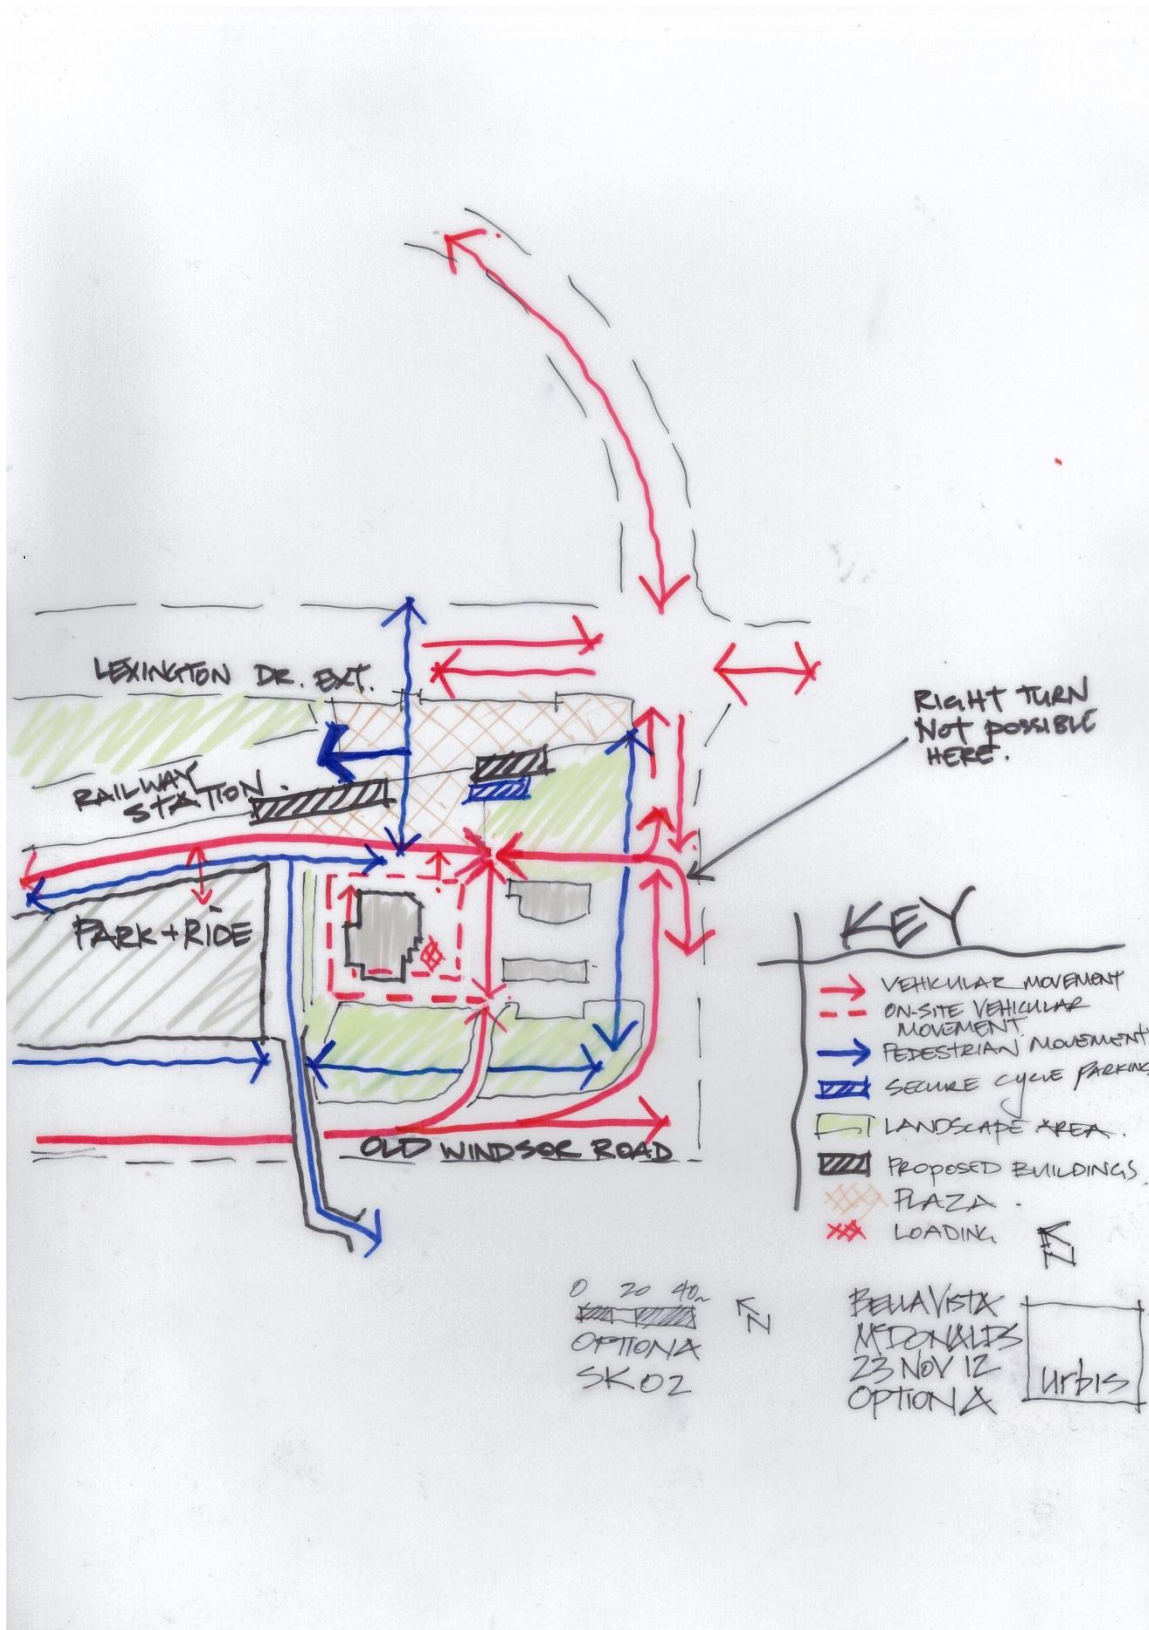 LEXINGTON DR. EXT.
RAILWAY
STATION.
PARK + RIDE
OLD WINDSOR ROAD
RIGHT TURN
NOT POSSIBLE
HERE.
KEY
VEHICULAR MOVEMENT
ON-SITE VEHICULAR
MOVEMENT
PEDESTRIAN MOVEMENT
SECURE CYCLE PARKING
LANDSCAPE AREA.
PROPOSED BUILDINGS
PLAZA.
LOADING
N
0 20 40m
N
OPTION A
SK02
BELLA VISTA
McDONALDS
23 NOV 12
OPTION A
urbis